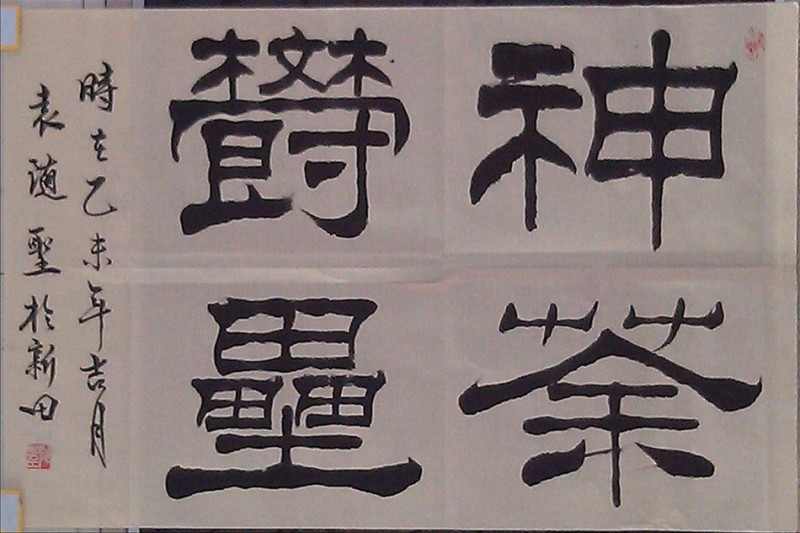 神荼
鬱壘
時在乙未年吉月
袁随聖於新田